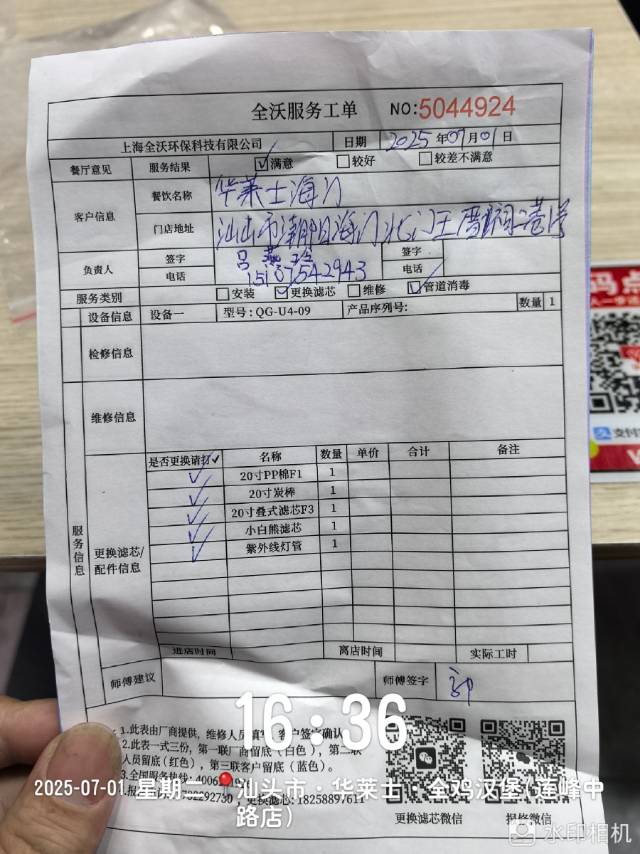 全沃服务工单 NO:5044924
上海全沃环保科技有限公司 日期 2025年07月01日
餐厅意见 服务结果 ☑满意 □较好 □较差不满意
客户信息 餐饮名称 华莱士海门
门店地址 汕头市潮阳海门北门王厝
负责人 签字 签字
电话 电话
服务类别 □安装 ☑更换滤芯 □维修 ☑管道消毒
设备信息 设备一 型号: QG-U4-09 产品序列号: 数量 1
检修信息
维修信息
服务信息
更换滤芯/配件信息
是否更换请打✓ 名称 数量 单价 合计 备注
✓ 20寸PP棉F1 1
✓ 20寸炭棒 1
✓ 20寸叠式滤芯F3 1
✓ 小白熊滤芯 1
✓ 紫外线灯管 1
进店时间 离店时间 实际工时
师傅建议 师傅签字
1.此表由厂商提供, 维修人员填写, 客户签字确认
2.此表一式三份, 第一联厂商留底(白色), 第二联
人员留底(红色), 第三联客户留底(蓝色)。
3.全国服务热线: 4006
更换滤芯: 18258897611
更换滤芯微信 报修微信
16:36
2025-07-01 星期 汕头市·华莱士·全鸡汉堡(莲峰中
路店)
水印相机
支付